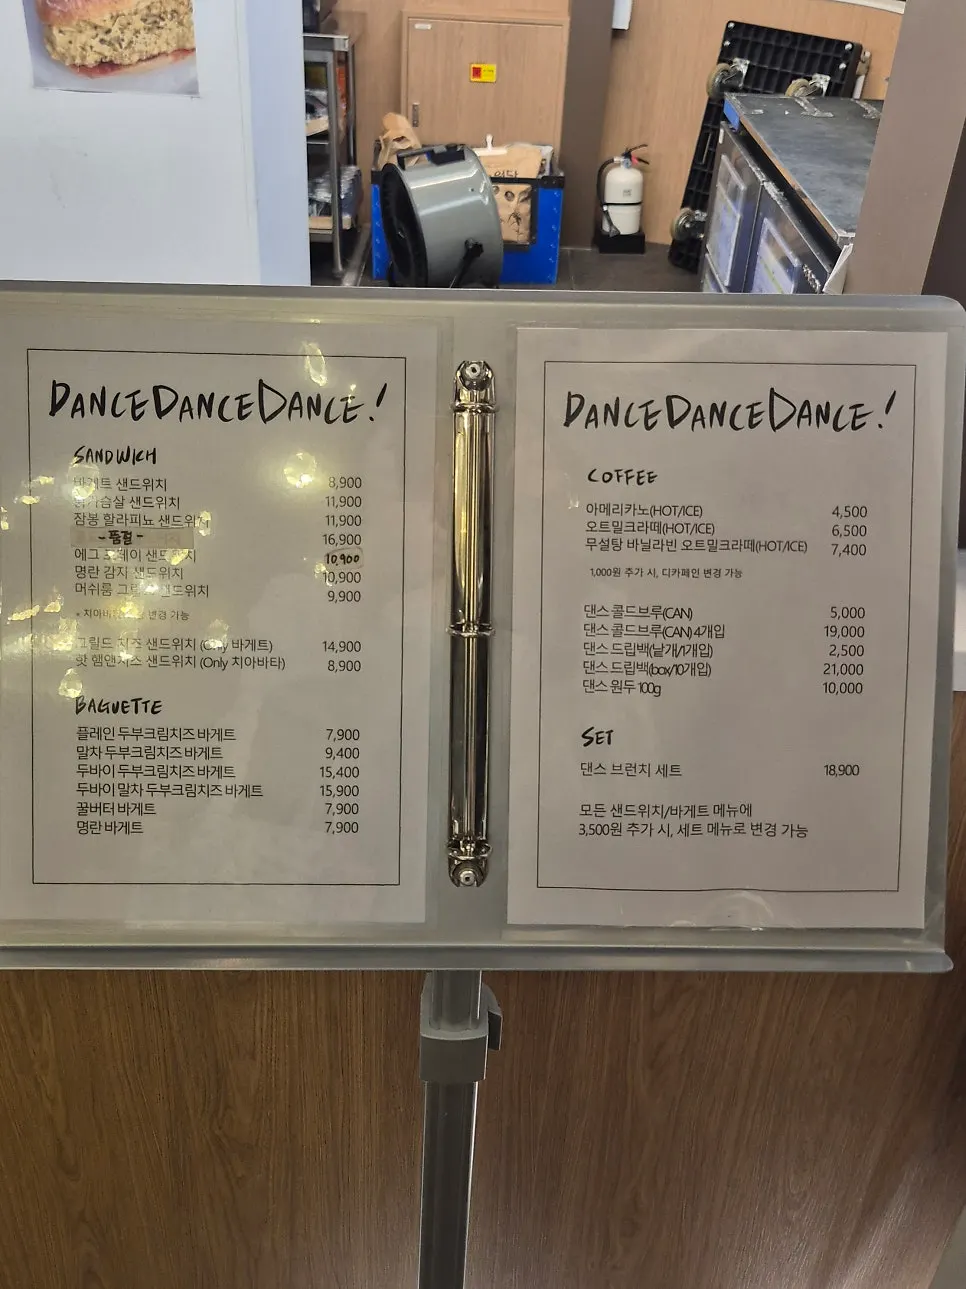 DANCEDANCEDANCE!
SANDWICH
바게트 샌드위치 8,900
닭가슴살 샌드위치 11,900
잠봉 할라피뇨 샌드위치 11,900
-품절- 16,900
에그 샌드위치 10,900
명란 감자 샌드위치 10,900
머쉬룸 샌드위치 9,900
변경 가능
그릴드 치즈 샌드위치 (Only 바게트) 14,900
핫 햄앤치즈 샌드위치 (Only 치아바타) 8,900
BAGUETTE
플레인 두부크림치즈 바게트 7,900
말차 두부크림치즈 바게트 9,400
두바이 두부크림치즈 바게트 15,400
두바이 말차 두부크림치즈 바게트 15,900
꿀버터 바게트 7,900
명란 바게트 7,900
DANCEDANCEDANCE!
COFFEE
아메리카노(HOT/ICE) 4,500
오트밀크라떼(HOT/ICE) 6,500
무설탕 바닐라빈 오트밀크라떼(HOT/ICE) 7,400
1,000원 추가 시, 디카페인 변경 가능
댄스 콜드브루(CAN) 5,000
댄스 콜드브루(CAN) 4개입 19,000
댄스 드립백(낱개/1개입) 2,500
댄스 드립백(box/10개입) 21,000
댄스 원두 100g 10,000
SET
댄스 브런치 세트 18,900
모든 샌드위치/바게트 메뉴에
3,500원 추가 시, 세트 메뉴로 변경 가능